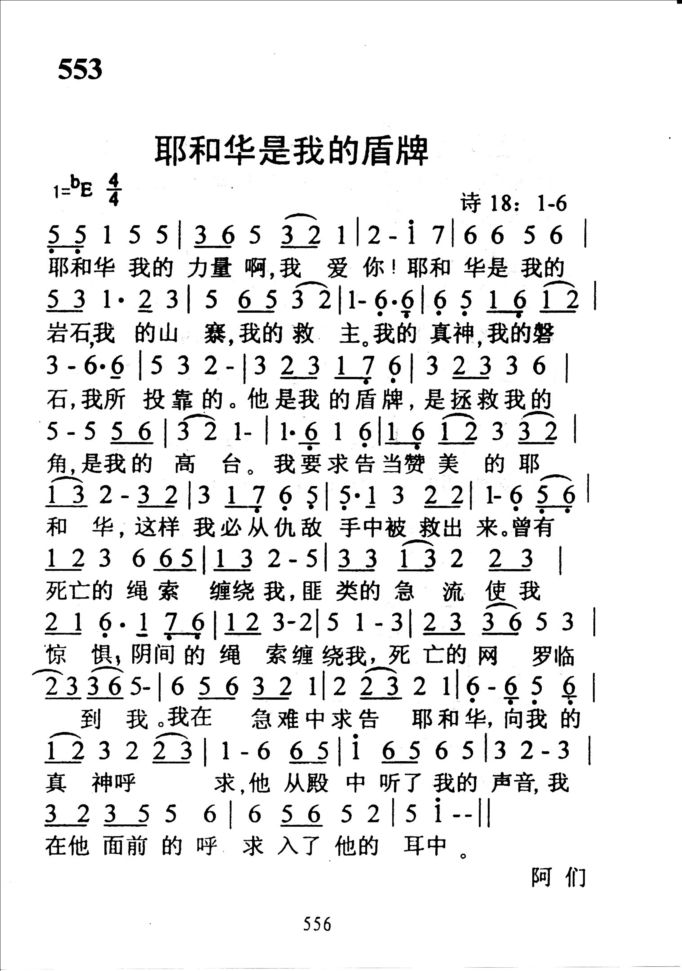 553
耶和华是我的盾牌
1=bE 4/4
诗 18： 1-6
5 5 1 5 5 | 3 6 5 3 2 1 | 2 - i 7 | 6 6 5 6 |
耶和华 我的 力量 啊,我 爱 你！耶和 华是 我的
5 3 1· 2 3 | 5 6 5 3 2 | 1 - 6·6 | 6 5 1 6 1 2 |
岩石,我 的山 寨,我的 救 主。我的 真神,我的磐
3 - 6·6 | 5 3 2 - | 3 2 3 1 7 6 | 3 2 3 3 6 |
石,我所 投靠的。他是我的盾牌, 是拯救我的
5 - 5 5 6 | 3 2 1 - | 1·6 1 6 | 1 6 1 2 3 3 2 |
角,是我的 高 台。我要求告当赞 美 的 耶
1 3 2 - 3 2 | 3 1 7 6 5 | 5·1 3 2 2 | 1 - 6 5 6 |
和 华, 这样 我必从仇敌 手中被 救出 来。曾有
1 2 3 6 6 5 | 1 3 2 - 5 | 3 3 1 3 2 2 3 |
死亡的 绳 索 缠绕 我, 匪 类的 急 流 使 我
2 1 6·1 7 6 | 1 2 3 3-2 | 5 1 - 3 | 2 3 3 6 5 3 |
惊 惧; 阴间 的 绳 索缠 绕我, 死 亡的 网 罗临
2 3 3 6 5 - | 6 5 6 5 3 2 1 | 2 2 3 2 1 | 6 - 6 5 6 |
到 我。我在 急难中求告 耶和华, 向我 的
1 2 3 2 2 3 | 1 - 6 6 5 | i 6 5 6 5 | 3 2 - 3 |
真 神呼 求,他 从殿 中 听了 我的 声音, 我
3 2 3 5 5 6 | 6 5 6 5 2 | 5 i - - ||
在他 面前 的 呼 求 入了 他的 耳中 。
阿 们
556